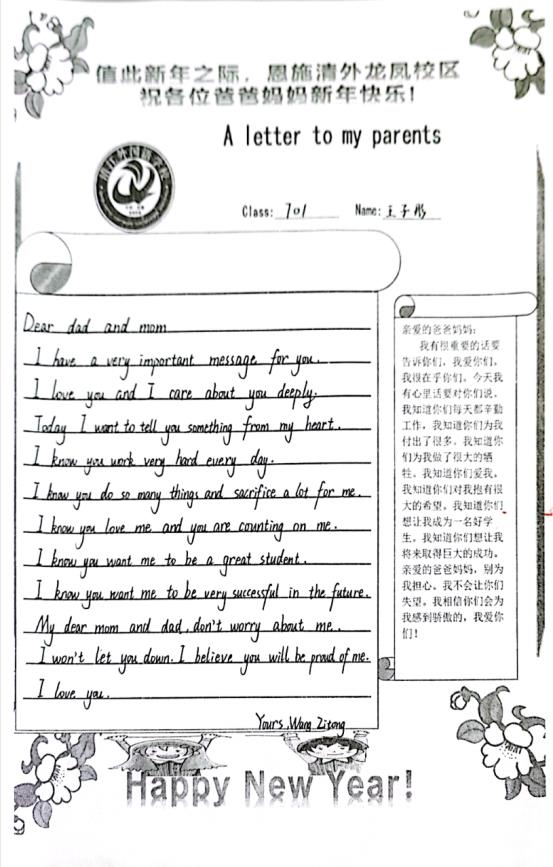 值此新年之际，恩施清外龙凤校区
祝各位爸爸妈妈新年快乐！
A letter to my parents
Class: 701 Name: 王子彤
Dear dad and mom
I have a very important message for you.
I love you and I care about you deeply.
Today I want to tell you something from my heart.
I know you work very hard every day.
I know you do so many things and sacrifice a lot for me.
I know you love me and you are counting on me.
I know you want me to be a great student.
I know you want me to be very successful in the future.
My dear mom and dad, don't worry about me.
I won't let you down. I believe you will be proud of me.
I love you.
Yours, Wang Zitong
亲爱的爸爸妈妈：
我有很重要的话要
告诉你们。我爱你们，
我很在乎你们。今天我
有心里话要对你们说。
我知道你们每天都辛勤
工作，我知道你们为我
付出了很多。我知道你
们为我做了很大的牺
牲。我知道你们爱我，
我知道你们对我抱有很
大的希望。我知道你们
想让我成为一名好学
生。我知道你们想让我
将来取得巨大的成功。
亲爱的爸爸妈妈，别为
我担心。我不会让你们
失望。我相信你们会为
我感到骄傲的，我爱你
们！
Happy New Year!